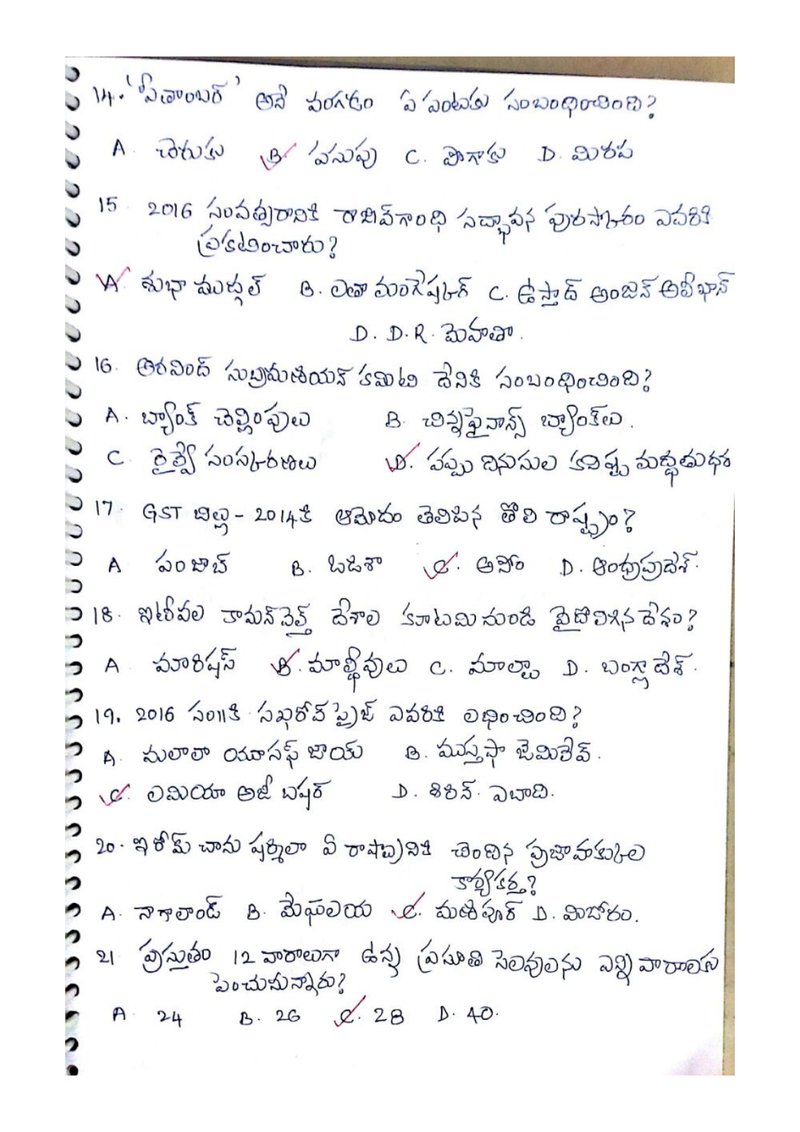 14. 'పీతాంబర్' అనే వంగడం ఏ పంటకు సంబంధించింది?
A. చెరుకు B. పసుపు C. పొగాకు D. మిరప
15 2016 సంవత్సరానికి రాజీవ్‌గాంధి సద్భావన పురస్కారం ఎవరికి
ప్రకటించారు?
A. శుభా ముద్గల్ B. లతా మంగేష్కర్ C. ఉస్తాద్ అంజద్ అలీఖాన్
D. D.R. మెహతా.
16. అరవింద్ సుబ్రామణియన్ కమిటి దేనికి సంబంధించింది?
A. బ్యాంక్ చెల్లింపులు B. చిన్నఫైనాన్స్ బ్యాంక్‌లు.
C. రైల్వే సంస్కరణలు D. పప్పు దినుసుల కనిష్ఠ మద్ధతుధర
17. GST బిల్లు - 2014కి ఆమోదం తెలిపిన తొలి రాష్ట్రం?
A పంజాబ్ B. ఒడిశా C. అసోం D. ఆంధ్రప్రదేశ్.
18. ఇటీవల కామన్‌వెల్త్ దేశాల కూటమి నుండి వైదొలిగిన దేశం?
A. మారిషస్ B. మాల్దీవులు C. మాల్టా D. బంగ్లాదేశ్.
19. 2016 సం॥కి సఖరోవ్ ప్రైజ్ ఎవరికి లభించింది?
A. మలాలా యూసఫ్ జాయ్ B. ముస్తఫా జెమిలేవ్.
C. లమియా అజీ బషర్ D. శిరిన్ ఎబాది.
20. ఇరోమ్ చాను షర్మిలా ఏ రాష్ట్రానికి చెందిన ప్రజాహక్కుల
కార్యకర్త?
A. నాగాలాండ్ B. మేఘాలయ C. మణిపూర్ D. మిజోరం.
21 ప్రస్తుతం 12 వారాలుగా ఉన్న ప్రసూతి సెలవులను ఎన్ని వారాలకు
పెంచుచున్నారు?
A. 24 B. 26 C. 28 D. 40.